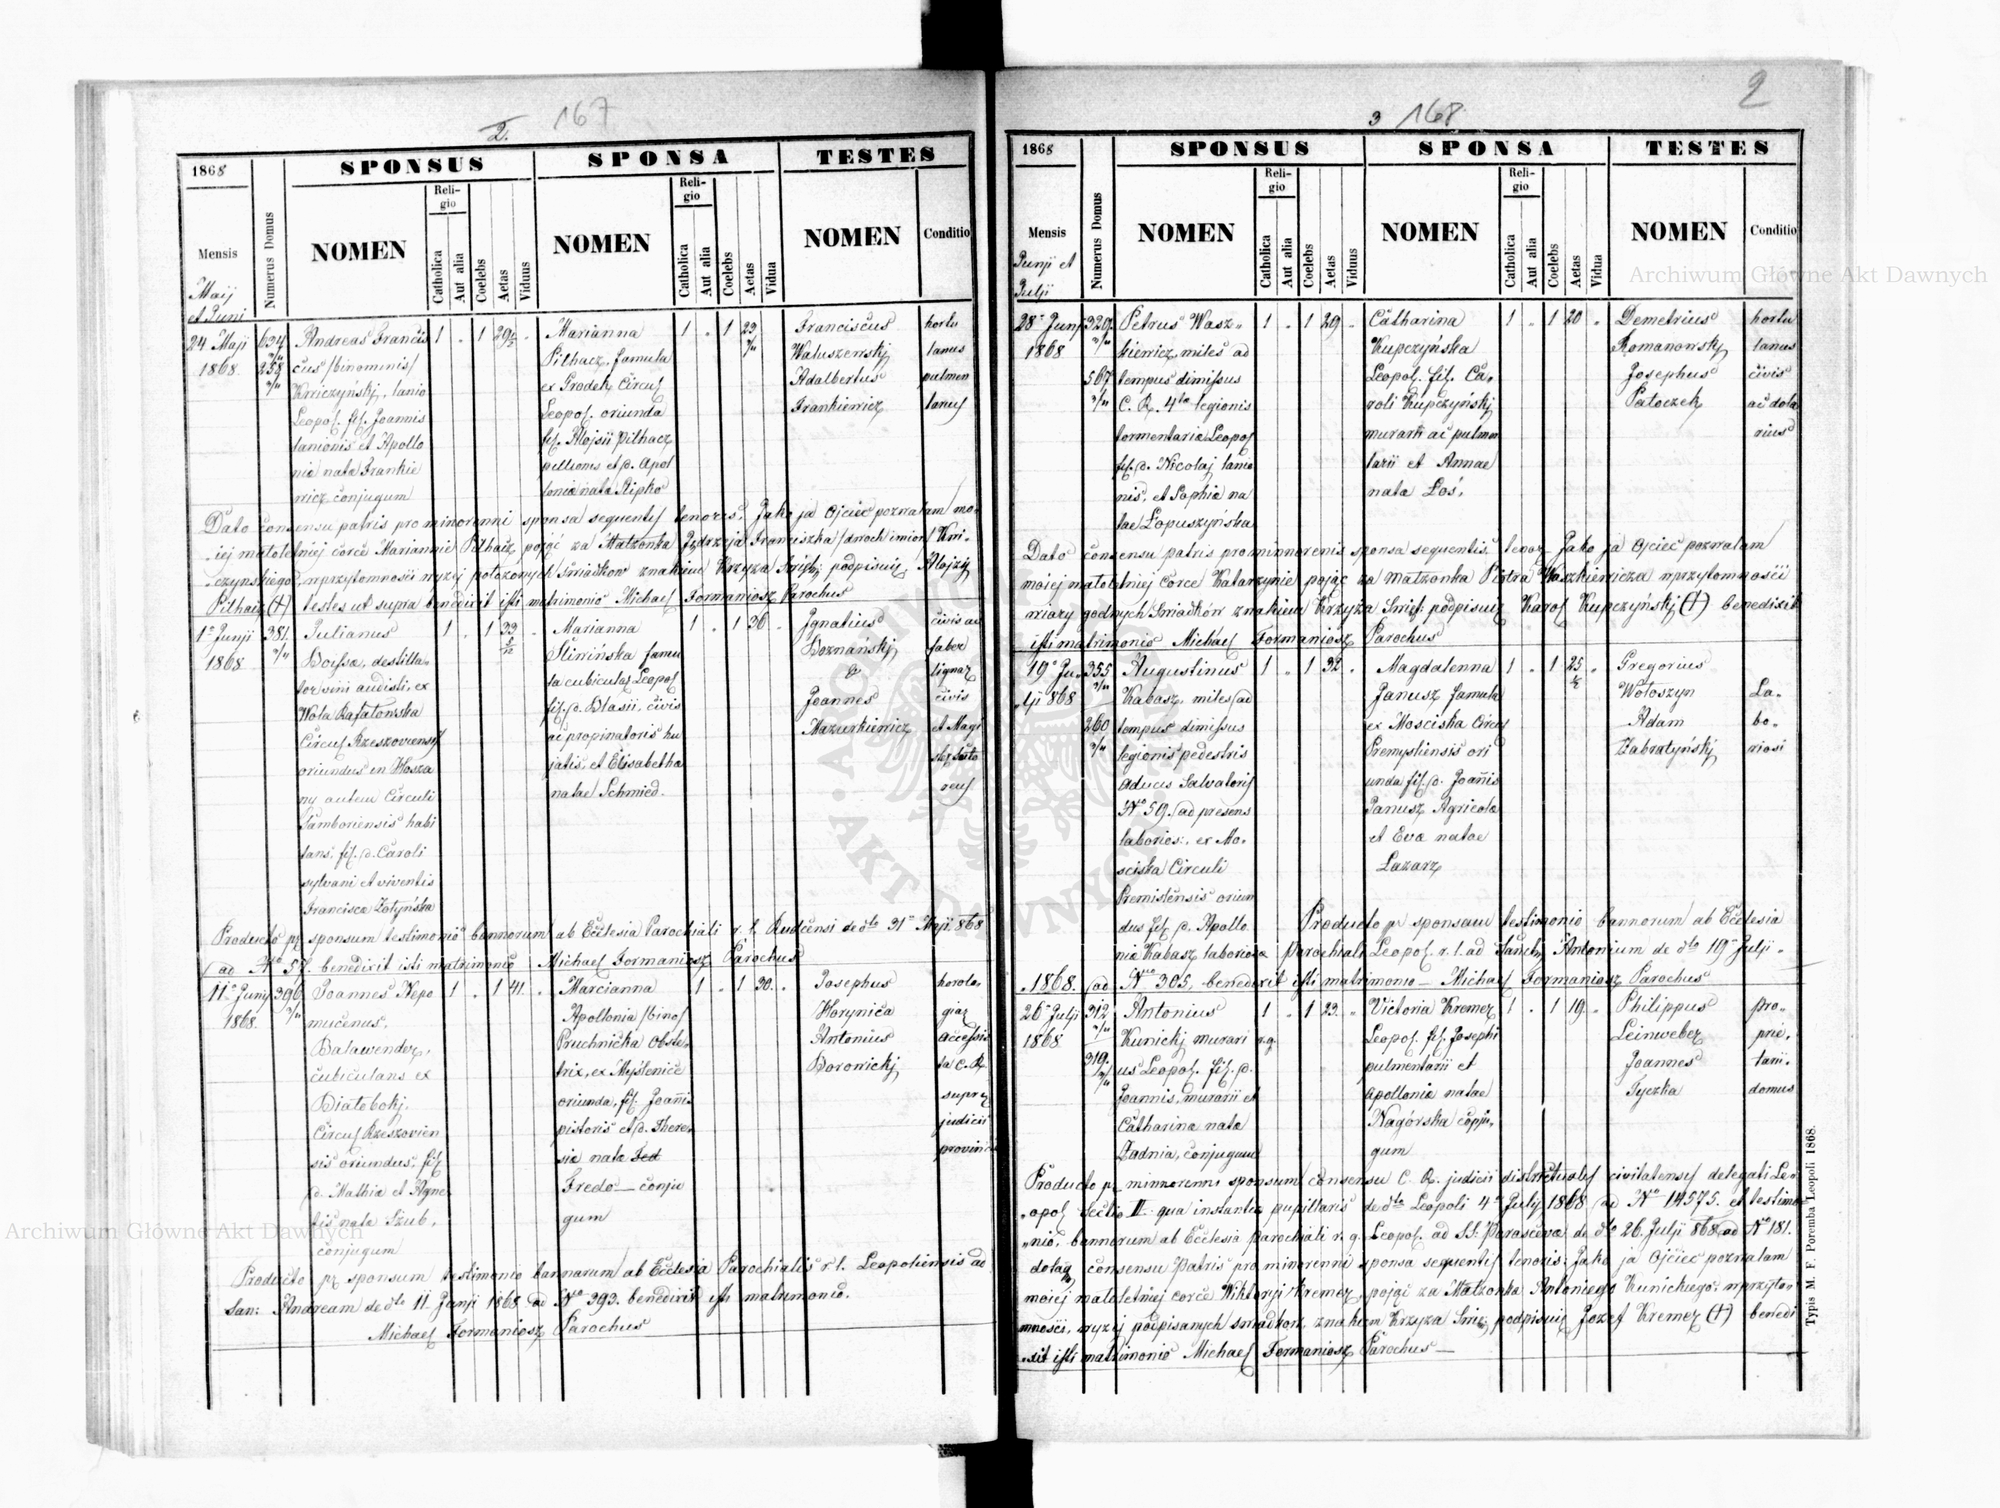 2. 167
1868
SPONSUS SPONSA TESTES
Mensis
Maij
et Juni
Numerus Domus
NOMEN
Religio
Catholica
Aut alia
Coelebs
Aetas
Viduus
NOMEN
Religio
Catholica
Aut alia
Coelebs
Aetas
Vidua
NOMEN
Conditio
24 Maji
1868.
634
258
Andreas Francis
cus /binominis/
Kniczyńskj, lanio
Leopol. fil. Joannis
lanionis et Apollo
nia nata Frankie
wicz conjugum
1 " 1 29
Marianna
Pilhacz, famula
ex Grodek Circul
Leopol. oriunda
fil. Alojsii Pilhacz
pellionis et d. Apol
lonia nata Ripko
1 " 1 23
Franciscus
Waluszewskj
Adalbertus
Frankiewicz
hortu
lanus
pulmen
tarius
Dato consensu patris pro minorenni sponsa sequentis tenoris: Jako ja Ojciec pozwalam mo-
iej małoletniej córce Mariannie Pilhacz pojąć za Małżonka Jędrzeja Franciszka /dwoch imion/ Kni-
czyńskiego, w przytomności wyżej położonych Świadków znakiem Krzyża Święt: podpisuię Alojzy
Pilhacz (+) testes ut supra benedixit isti matrimonio Michael Formaniosz Parochus
1º Junji
1868
381.
Julianus
Boissa, destilla-
tor vini audisti, ex
Wola Rafałowska
Circul Rzeszoviensis
oriundus in Hosza
ny autem Circuli
Samboriensis habi
tans, fil. d. Caroli
sylvani et viventis
Francisca Żołyńska
1 " 1 33
Marianna
Śliwińska famu
la cubicular Leopol
fil. d. Blasii, civis
ac propinatoris hu
jatis, et Elisabetha
natae Schmied.
1 " 1 36
Ignatius
Poznańskj
&
Joannes
Mazurkiewicz
civis ac
faber
lignar
civis
et Magi
reus
Producto pr sponsum testimonio bannorum ab Ecclesia Parochiali r. l. Rudcensi de dto 31 Maji 868
ad Nro 57. benedixit isti matrimonio Michael Formaniosz Parochus
11º Junij
1868.
396
Joannes Nepo
mucenus,
Balawender,
cubiculans ex
Białobokj,
Circul Rzeszovien
sis oriundus, fil.
d. Mathia et Agne
tis nata Szub,
conjugum
1 " 1 41.
Marcianna
Apollonia /bino/
Pruchnicka obste-
trix, ex Myślenice
oriunda, fil. Joanni
pistoris et d. There-
sia nata Fed
Fredo — conju
gum
1 " 1 30.
Josephus
Horynica
Antonius
Borowickj
horolo-
giar
accessis
ta C. R.
supre
judicii
provinci
Producto pr sponsum testimonio bannorum ab Ecclesia Parochialis r. l. Leopoliensis ad
San: Andream de dto 11 Junji 1868 ad Nro 393. benedixit isti matrimonio.
Michael Formaniosz Parochus
3 168 2
1868
SPONSUS SPONSA TESTES
Mensis
Junji et
Julji
Numerus Domus
NOMEN
Religio
Catholica
Aut alia
Coelebs
Aetas
Viduus
NOMEN
Religio
Catholica
Aut alia
Coelebs
Aetas
Vidua
NOMEN
Conditio
28º Junj
1868
320.
567
Petrus Wasz-
kiewicz, miles ad
tempus dimissus
C. R. 4ta legionis
tormentaria Leopol
fil. d. Nicolaj lanio
nis, et Sophia na
tae Łopuszyńska
1 " 1 29 "
Catharina
Kupczyńska
Leopol. fil. Ca-
roli Kupczyńskj
murarii ac pulmen
tarii et Annae
nata Łoś,
1 " 1 20 "
Demetrius
Romanowskj
Josephus
Patoczek
hortu
lanus
civis
ac dola
rius
Dato consensu patris pro minnorenis sponsa sequentis tenor — Jako ja Ojciec pozwalam
mojej małoletniej córce Katarzynie pojąc za małżonka Piotra Waszkiewicza w przytomności
wiary godnych Świadków znakiem Krzyża Święt: podpisuię Karol Kupczyńskj (+) benedixit
isti matrimonio Michael Formaniosz Parochus
19º Ju-
lji 868
355
260
Augustinus
Kabasz, miles /ad
tempus dimissus
legionis pedestris
aducis Salvatoris
Nro 59. /ad presens
labories:, ex Mo-
sciska Circuli
Premislensis oriun
dus fil. d. Apollo
nia Kabasz laboriosa
1 " 1 32 "
Magdalenna
Janusz famula
ex Mosciska Circul
Premysliensis ori
unda fil. d. Joannis
Janusz Agricola
et Eva natae
Lazarz
1 " 1 25
Gregorius
Wołoszyn
Adam
Zabratyńskj
La-
bo-
riosi
Producto pr sponsam testimonio bannorum ab Ecclesia
Parochiali Leopol. r. l. ad Sancty Antonium de dto 19º Julji -
1868. /ad Nro 305, benedixit isti matrimonio — Michael Formaniosz Parochus
26º Julji
1868
312
319.
Antonius
Kunickj murari
us Leopol. fil. d.
Joannis, murarii et
Catharina nata
Zadnia, conjugum
1 r.g. " 1 23. "
Victoria Kremer
Leopol. fil. Josephi
pulmentarii et
Apollonia natae
Nagórska conju-
gum
1 " 1 19 "
Philippus
Leinweber
Joannes
Tyczka
pro-
prie-
tarii.
domus
Producto pr minnorenni sponsum consensu C. R. judicii districtuales civitatensis delegati Le-
opol. Sectio II. qua instantia pupillaris de dto Leopoli 4 Julij 1868 ad Nro 14575. et testimo-
nio, bannorum ab Ecclesia parochiali r. g. Leopol. ad SS: Parasceva de dto 26. Julji 868 ad Nº 181.
consensu Patris pro minorenni sponsa sequentis tenoris: Jako ja Ojciec pozwalam
mojej małoletniej córce Wiktoryi Kremer, pojąć za Małżonka Antoniego Kunickiego, w przyto-
mności, wyżej podpisanych swiadków, znakiem Krzyża Święt: podpisuię Jozef Kremer (+) benedi
xit isti matrimonio Michael Formaniosz Parochus —
Typis M. F. Poremba Leopoli 1868.
Archiwum Główne Akt Dawnych
Archiwum Główne Akt Dawnych